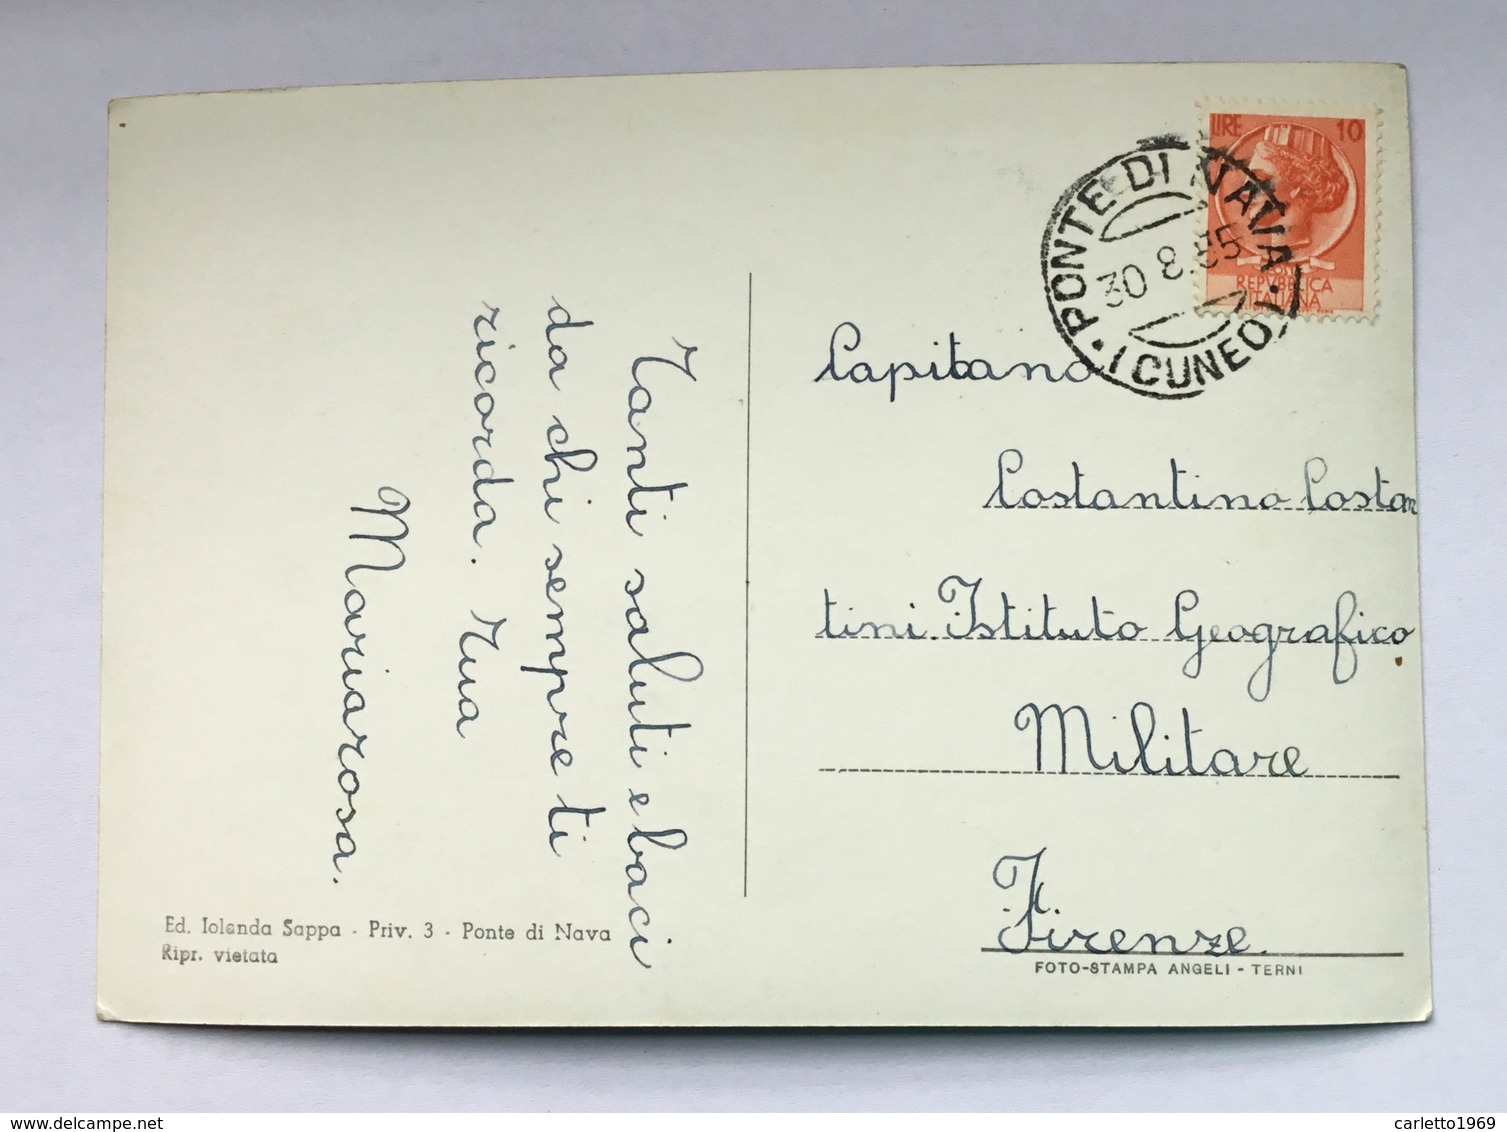 Tanti saluti e baci
da chi sempre ti
ricorda. Tua
Mariarosa.
Ed. Iolanda Sappa - Priv. 3 - Ponte di Nava
Ripr. vietata
LIRE 10
POSTE
REPVBBLICA
ITALIANA
PONTE DI NAVA
30 8.
(CUNEO)
Capitano
Costantino Costan
tini. Istituto Geografico
Militare
Firenze.
FOTO-STAMPA ANGELI - TERNI
carletto1969